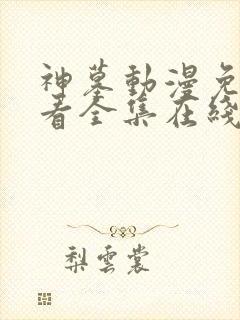 神墓動漫免
看全集在綫
梨雲裳